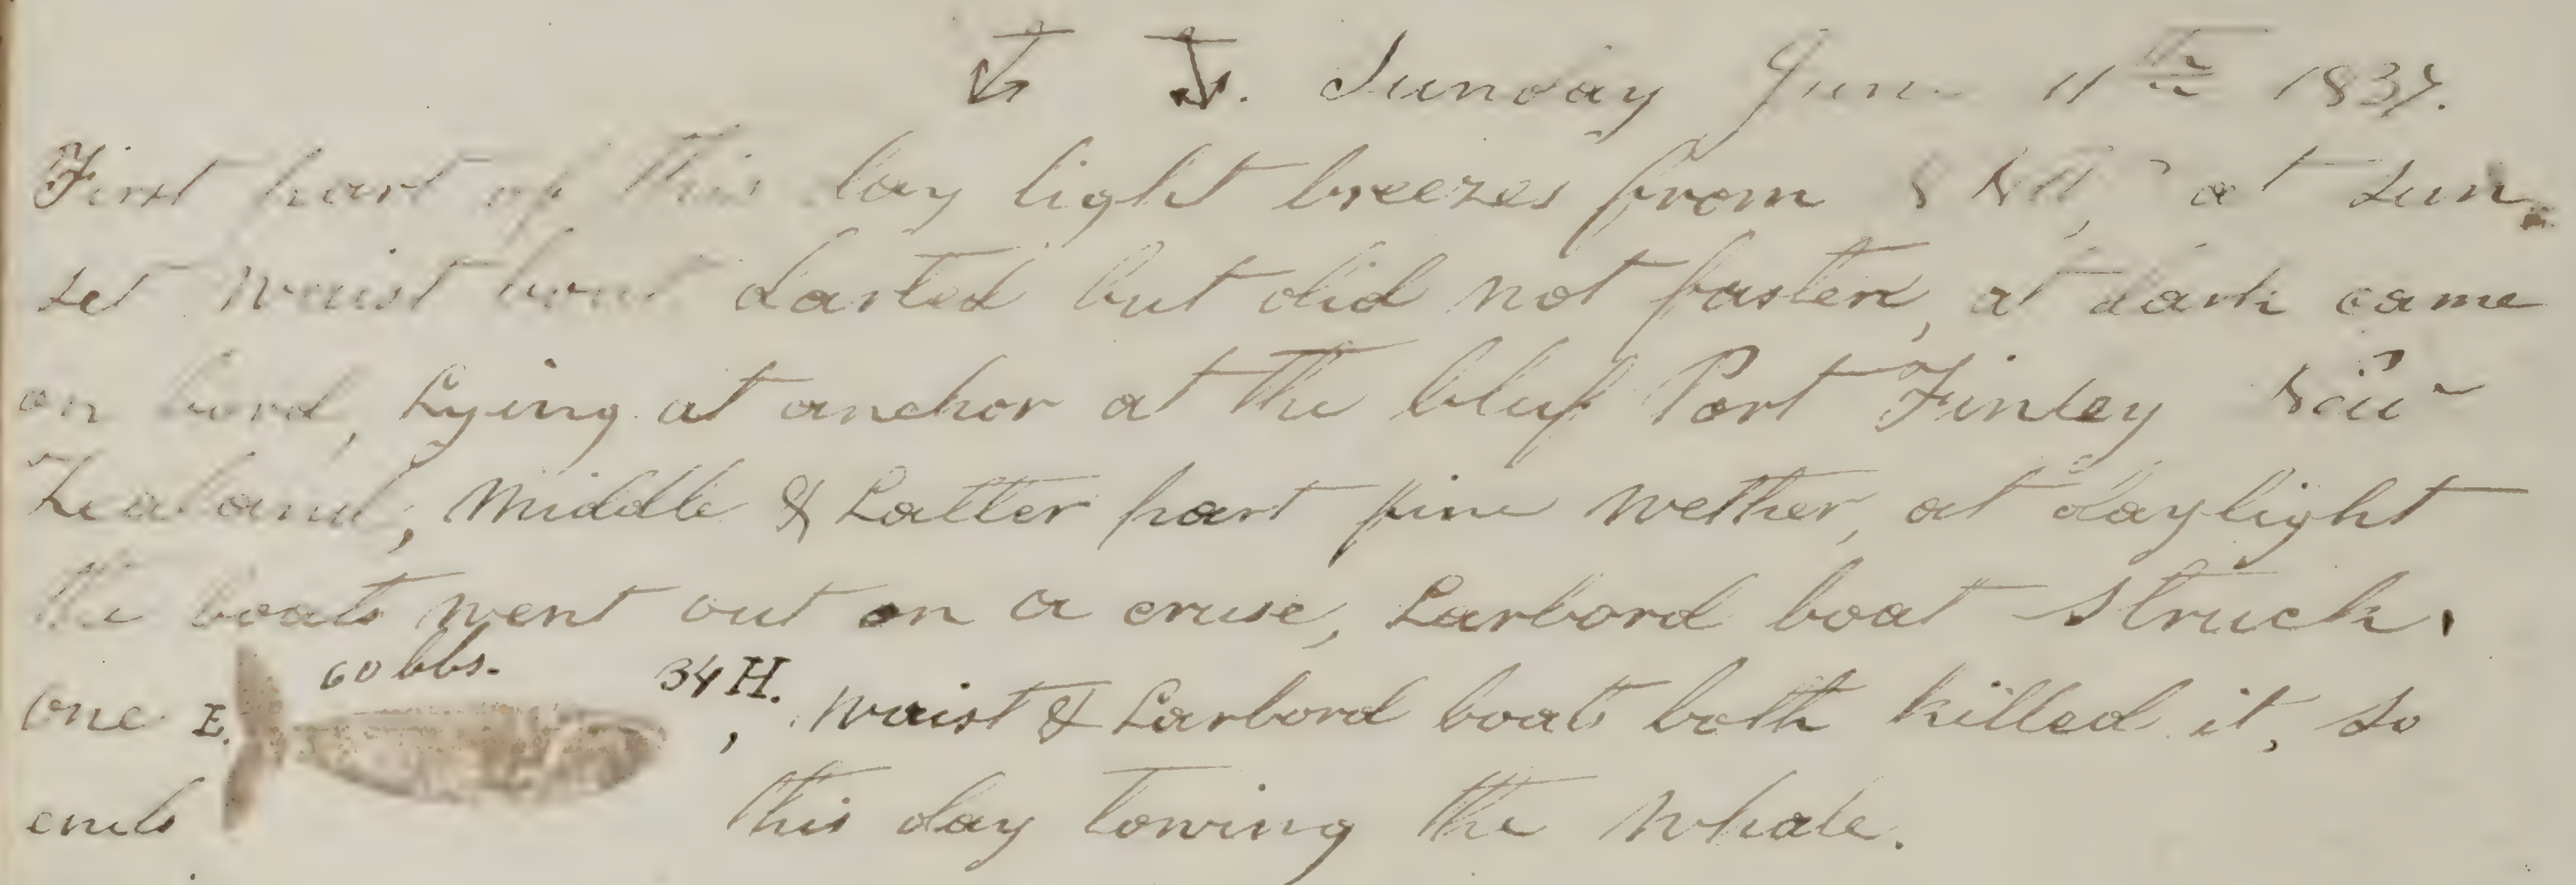 Sunday June 11th 1837.
First part of this day light breezes from at sun
set Waist boat darted but did not fasten, at dark came
on bord, Lying at anchor at the bluf Port Finley New
Zealand, Middle & Latter part fine wether, at daylight
the boats went out on a cruse, Larbord boat struck.
60 bbs. 34 H.
one E. , Waist & Larbord boats both killed it, so
ends this day towing the whale.